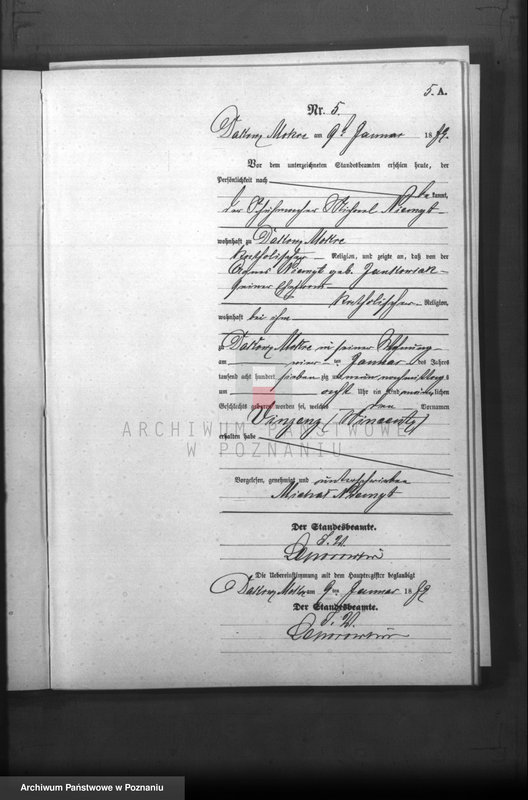 5. A.
Nr. 5.
Dakowy Mokre am 9ten Januar 1879.
Vor dem unterzeichneten Standesbeamten erschien heute, der
Persönlichkeit nach be kannt,
der Schuhmacher Michael Niemyt
wohnhaft zu Dakowy Mokre
katholischer Religion, und zeigte an, daß von der
Agnes Niemyt geb. Jankowiak
seiner Ehefrau
katholischer Religion,
wohnhaft bei ihm
zu Dakowy Mokre in seiner Wohnung
am vier ten Januar des Jahres
tausend acht hundert sieben zig und neun nachmittags
um acht Uhr ein Kind männlichen
Geschlechts geboren worden sei, welches den Vornamen
Vinzenz (Wincenty)
erhalten habe
ARCHIWUM PAŃSTWOWE
W POZNANIU
Vorgelesen, genehmigt und unterschrieben
Michał Niemyt
Der Standesbeamte.
I. V.
Die Uebereinstimmung mit dem Hauptregister beglaubigt
Dakowy Mokre am 9ten Januar 1879
Der Standesbeamte.
I. V.
Archiwum Państwowe w Poznaniu